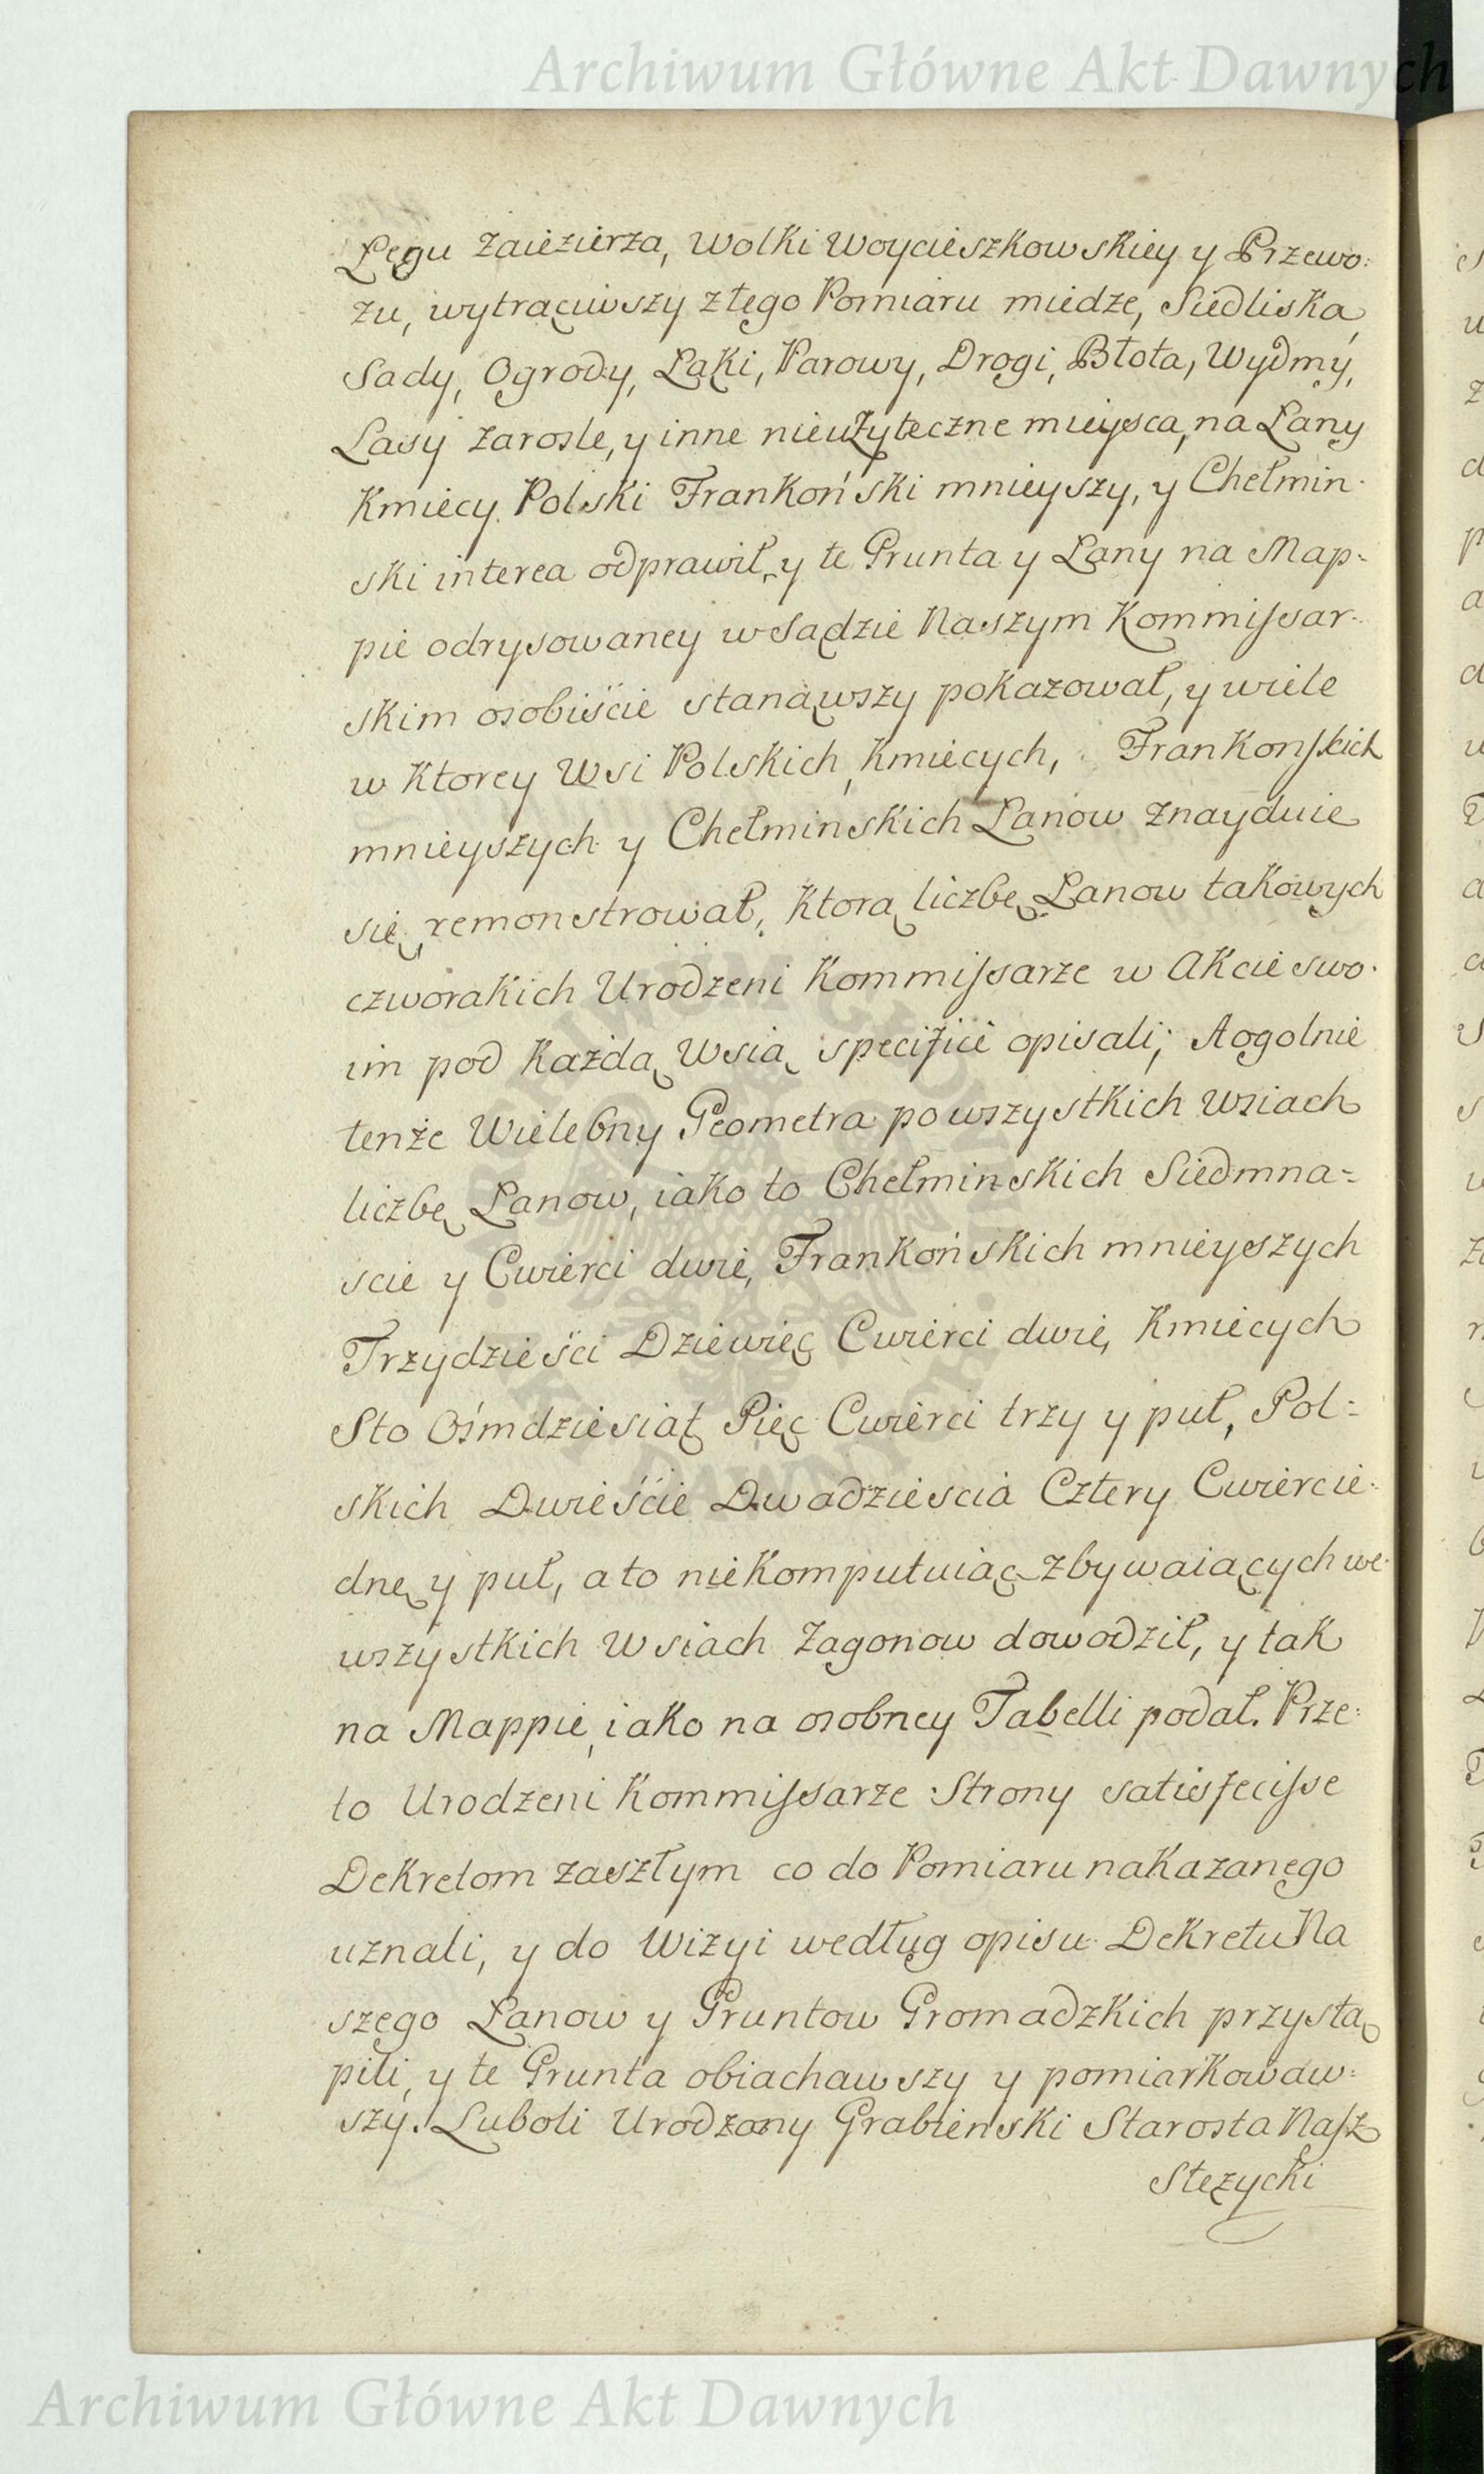 Archiwum Główne Akt Dawnych
Łęgu Zaiezierza, Wolki Woycieszkowskiey y Przewo:
zu, wytrąciwszy z tego Pomiaru miedze, Siedliska,
Sady, Ogrody, Łąki, Parowy, Drogi, Błota, Wydmy,
Lasy Zarosle, y inne nieużyteczne mieysca, na Łany
Kmiecy Polski Frankoński mnieyszy, y Chełmin-
ski interea odprawił, y te Grunta y Łany na Map-
pie odrysowaney w Sądzie Naszym Kommissar-
skim osobiście stanąwszy pokazował, y wiele
w Ktorey Wsi Polskich, Kmiecych, Frankonskich
mnieyszych y Chełminskich Łanow znayduie
się remonstrował, Ktorą liczbę Łanow takowych
czworakich Urodzeni Kommissarze w Akcie swo-
im pod Każdą Wsią specifice opisali; A ogolnie
tenże Wielebny Geometra po wszystkich Wsiach
liczbę Łanow, iako to Chełminskich Siedmna=
scie y Cwierci dwie, Frankońskich mnieyszych
Trzydzieści Dziewięc Cwierci dwie, Kmiecych
Sto Ośmdziesiąt Pięc Cwierci trzy y puł, Pol=
skich Dwieście Dwadziescia Cztery Cwiercie-
dnę y puł, a to nie Komputuiąc zbywaiących we-
wszystkich Wsiach Zagonow dowodził, y tak
na Mappie, iako na osobney Tabelli podał. Prze:
to Urodzeni Kommissarze Strony satisfecisse
Dekretom zaszłym co do Pomiaru nakazanego
uznali, y do Wizyi według opisu Dekretu Na
szego Łanow y Gruntow Gromadzkich przystą
pili, y te Grunta obiachawszy y pomiarkowaw:
szy. Luboli Urodzony Grabienski Starosta Nasz
Stęzycki
Archiwum Główne Akt Dawnych